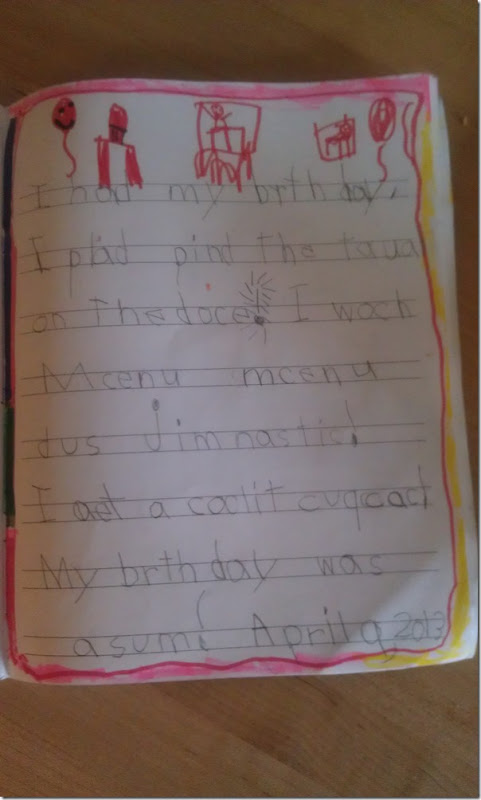 I had my brthday.
I plad pind the taua
on the doce! I woch
Mcenu mcenu
dus Jimnastis!
I aet a coclit cuqcack
My brthday was
asum! April 9, 2013